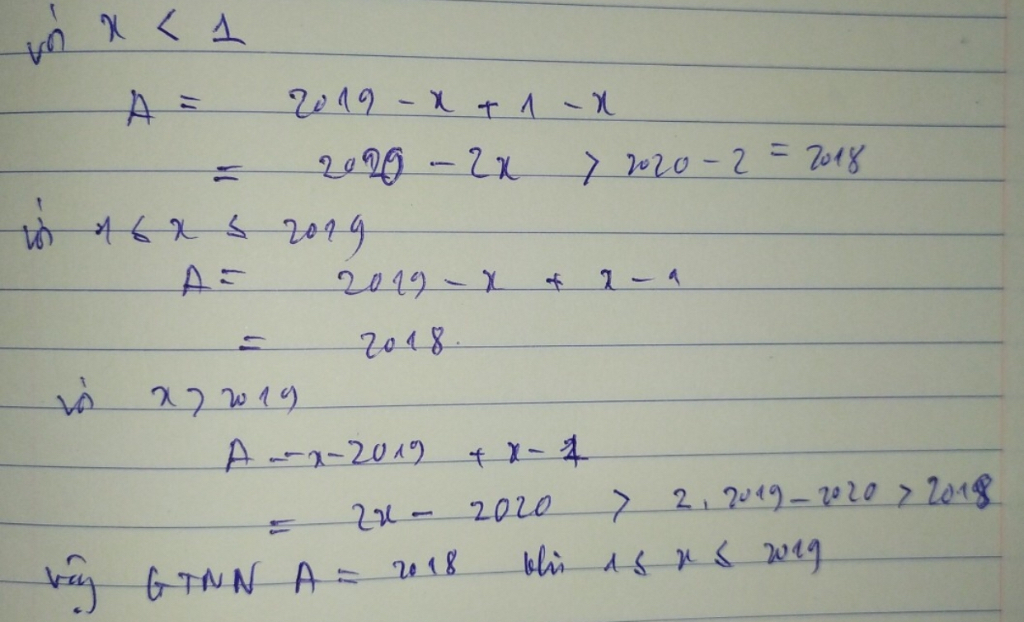 với x < 1
A = 2019 - x + 1 - x
= 2020 - 2x > 2020 - 2 = 2018
với 1 ≤ x ≤ 2019
A = 2019 - x + x - 1
= 2018.
với x > 2019
A = x - 2019 + x - 1
= 2x - 2020 > 2.2019 - 2020 > 2018
vậy GTNN A = 2018 khi 1 ≤ x ≤ 2019